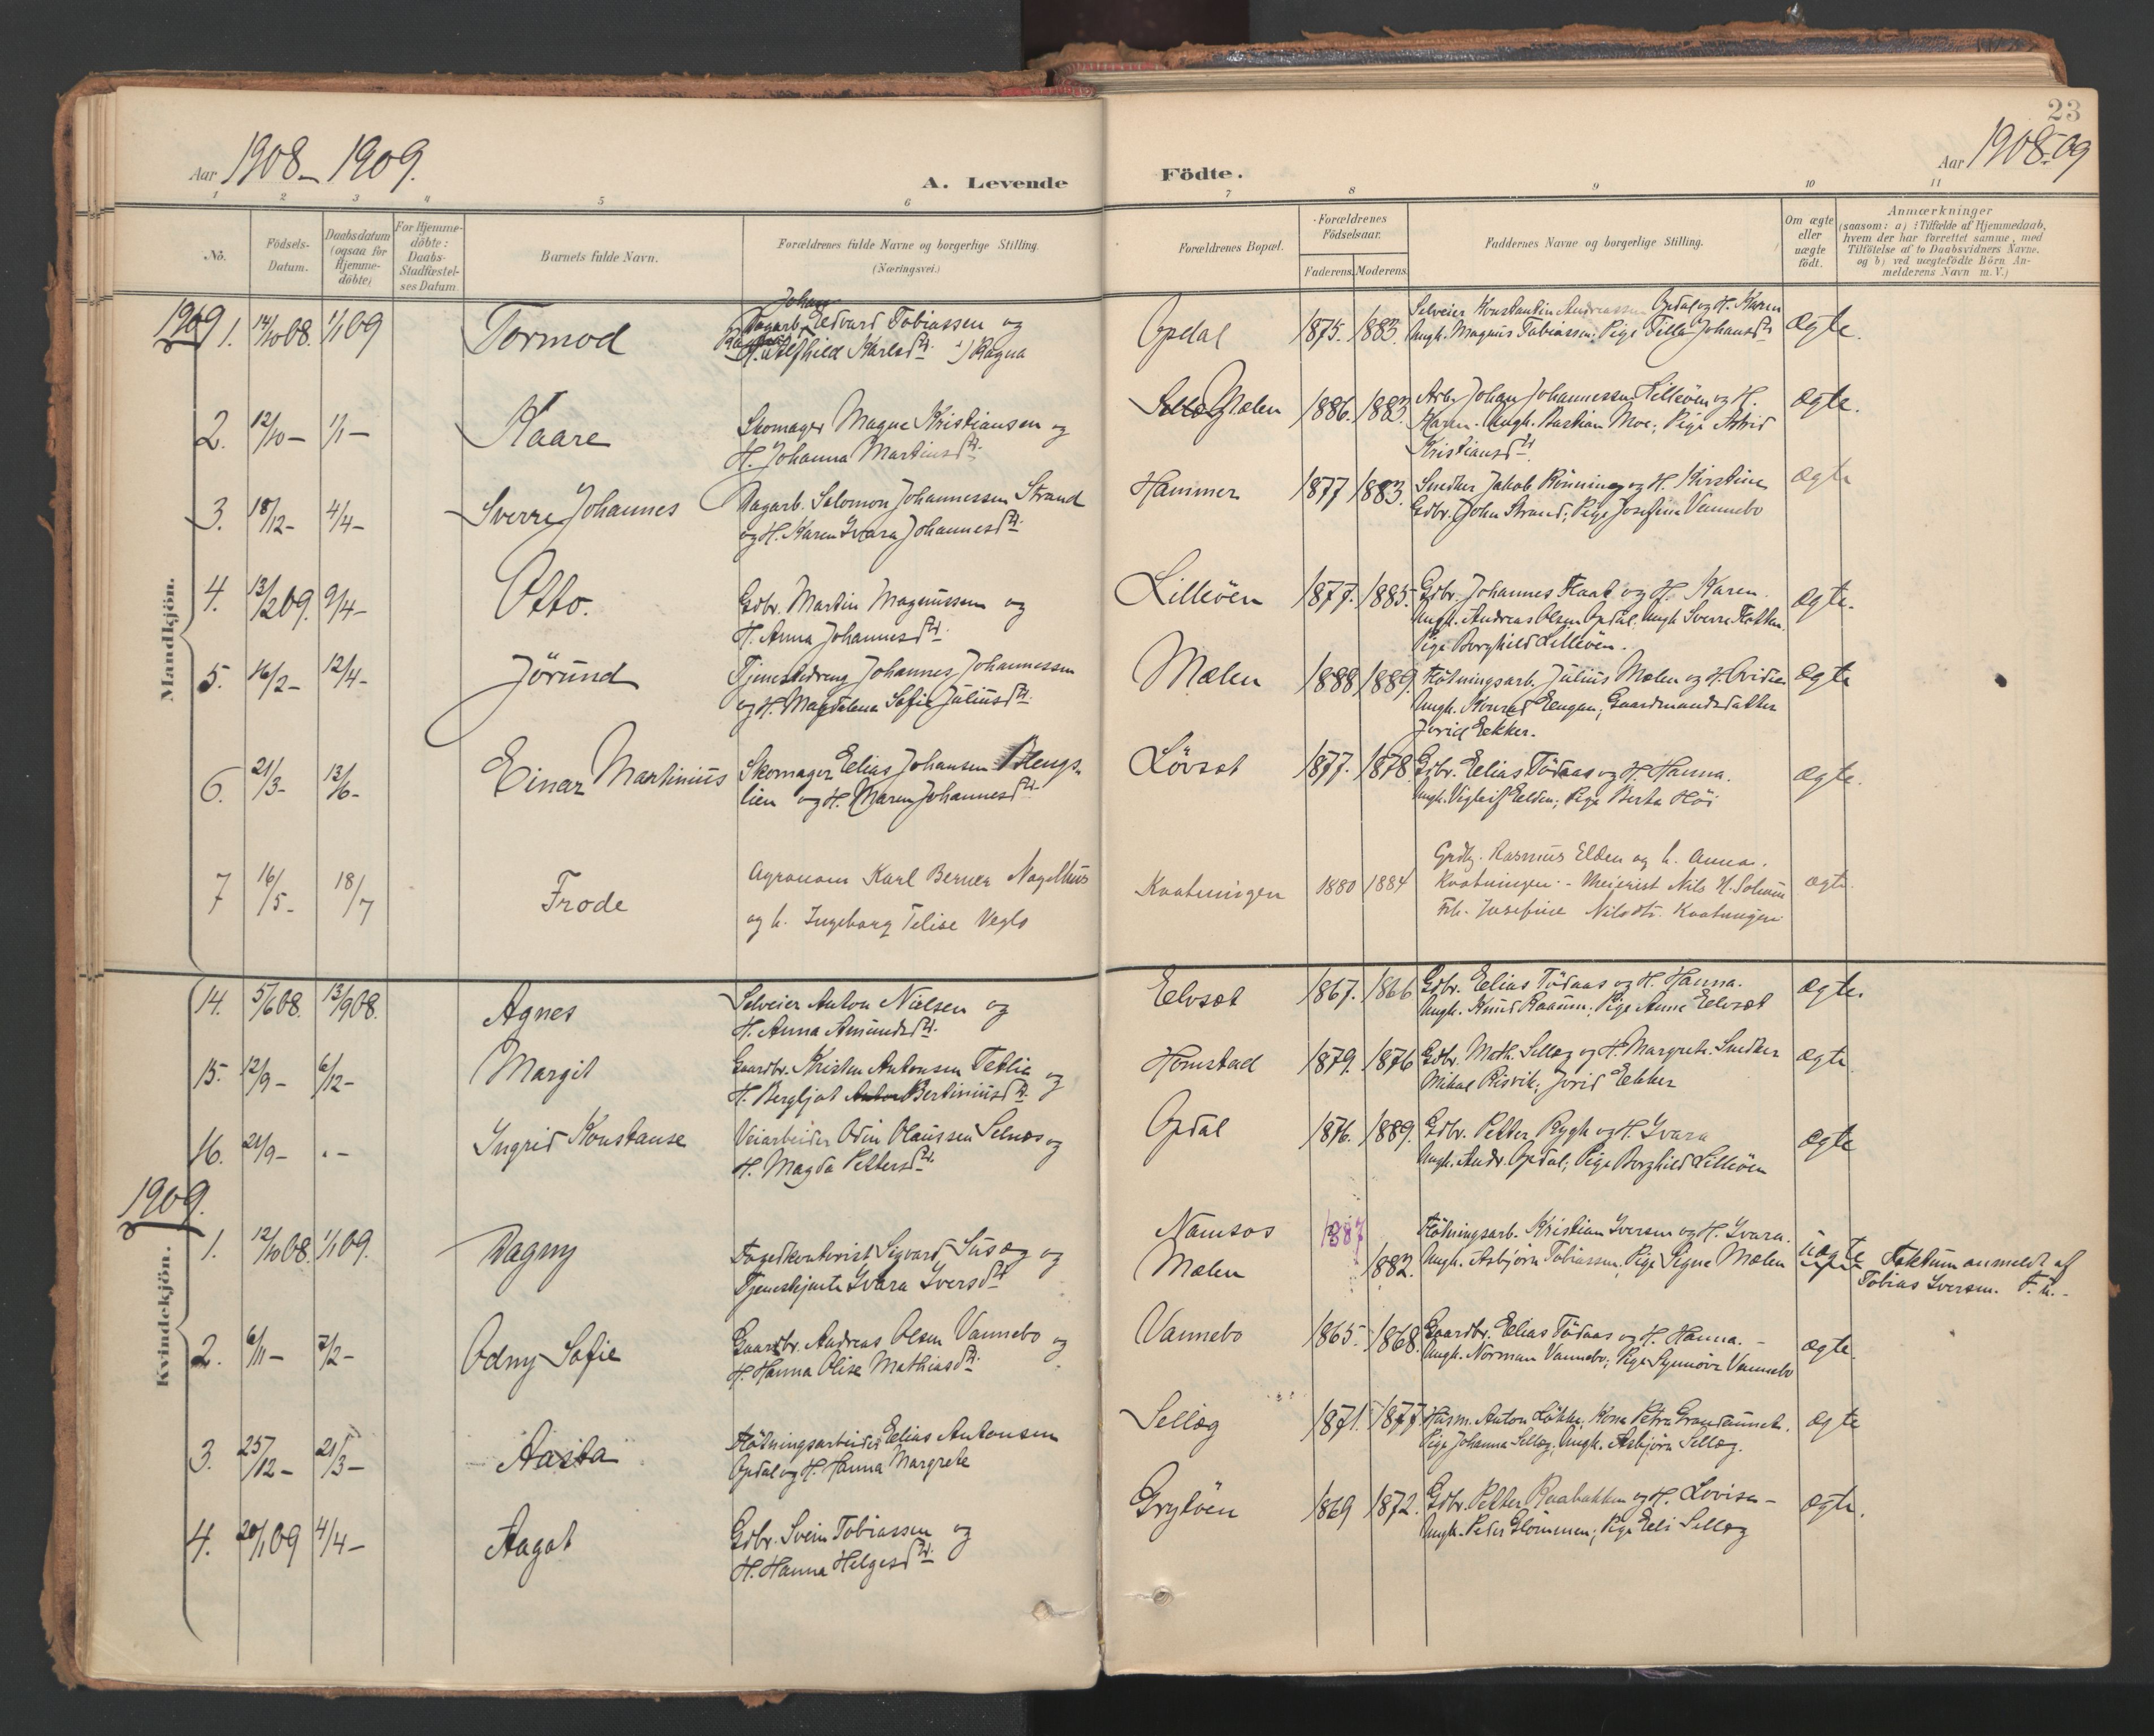 23
Aar 1908-1909.
A. Levende
Födte.
Aar 1908-09
1 2 3 4 5 6 7 8 9 10 11
No.
Födsels-Datum.
Daabsdatum (ogsaa for Hjemme-döbte)
For Hjemme-döbte: Daabs-Stadfæstel-ses Datum.
Barnets fulde Navn.
Forældrenes fulde Navne og borgerlige Stilling.
(Næringsvei.)
Forældrenes Bopæl.
Forældrenes Födselsaar.
Faderens. Moderens.
Faddernes Navne og borgerlige Stilling.
Om ægte eller uægte födt.
Anmærkninger
(saasom: a) i Tilfælde af Hjemmedaab,
hvem der har forrettet samme, med
Tilföielse af to Daabsvidners Navne.
og b) ved uægtefödte Börn An-
melderens Navn m. V.)
Mandkjön.
1909 1. 14/10 08. 1/1 09 Tormod
Johan
Dagarb. Edvard Tobiassen og
H. Alfhild Karlsdtr. Ragna
Opdal 1875. 1883.
Selveier Konstantin Andreassen Opdal og H. Karen
Ungk. Magnus Tobiassen; Pige Tilla Johansdtr
ægte.
2. 12/10 - 1/1 - Kaare
Skomager Magne Kristiansen og
H. Johanna Martinsdtr.
Mælen 1886. 1883.
Arb. Johan Johannessen Lilleöen og H.
Karen. Ungk. Bastian Moe; Pige Astrid
Kristiansdtr.
ægte.
3. 18/12 - 4/4 - Sverre Johannes
Dagarb. Solomon Johannessen Strand
og H. Karen Ivara Johannesdtr.
Hammer 1877 1883.
Snedker Jakob Rönning og H. Kirstine
Gdbr. John Strand; Pige Josefine Vannebo
ægte
4. 13/2 09. 9/4 - Otto.
Gdbr. Martin Magnussen og
H. Anna Johannesdtr.
Lilleöen 1877. 1885.
Gdbr. Johannes Flaat og H. Karen.
Ungk. Andreas Olsen Opdal. Ungk Sverre Flotten.
Pige Borghild Lilleöen.
ægte.
5. 16/2 - 12/4 - Jörund
Tjenestedreng Johannes Johannessen
og H. Magdalena Sofie Juliusdtr.
Mælen 1888 1889.
Flötningsarb. Julius Mælen og H. Ovidia
Ungk. Konrad Eengan; Gaardmandsdatter
Jorid Eekker.
ægte
6. 21/3 - 13/6 - Einar Martinius
Skomager Eelias Johansen Hengs-
lien og H. Maren Johannesdtr.
Lövset 1877. 1878.
Gdbr. Eelias Tödaas og H. Hanna.
Ungk. Vigleif Eelden; Pige Berta Höi
ægte.
7 16/5 - 18/7 Frode
Agronom Karl Berner Nagelhus
og h. Ingeborg Telise Vegls
Kvatningen 1880 1884
Grdbr. Rasmus Elden og h. Anna.
Kvatningen. - Meierist Nils H. Solum
Frk. Josefine Nilsdtr. Kvatningen
ægte.
Kvindekjön.
14. 5/6 08. 13/9 08. Agnes
Selveier Anton Nielsen og
H. Anna Amundsdtr.
Eelvset 1867. 1866
Gdbr. Eelias Tödaas og H. Hanna.
Ungk. Knud Raaum; Pige Anne Eelvset
ægte.
15. 12/9 - 6/12 - Margit
Gaardbr. Kristen Antonsen Tetlia og
H. Bergljot Bertiniusdtr.
Homstad 1879. 1876
Gdbr. Math. Sellæg og H. Margrete. Snedker
Mikal Risvik; Jorid Eekker
ægte
16. 21/9 - . - Ingrid Konstanse
Veiarbeider Odin Olaussen Selnæs og
H. Magda Pettersdtr.
Opdal 1876. 1889.
Gdbr. Petter Rygh og H. Ivara
Ungk. Andr. Opdal; Pige Borghild Lilleöen
ægte
1909.
1. 12/10 08. 1/1 09. Dagny
Fogedkontorist Sigvard Susæg og
Tjenestejente Ivara Iversdtr
Namsos 1887
Mælen 1882.
Flötningsarb. Kristian Iversen og H. Ivara.
Ungk. Asbjörn Tobiassen. Pige Signe Mælen
uægte
Faktum anmeldt af
Tobias Iversen. F. u. -
2. 6/11 - 7/2 - Odny Sofie
Gaardbr. Andreas Olsen Vannebo og
H. Hanna Olise Mathiasdtr.
Vannebo 1865 1868.
Gaardbr. Eelias Tödaas og H. Hanna. -
Ungk. Norman Vannebo; Pige Synnöve Vannebo
ægte.
3. 25/12 - 21/3 - Aasta
Flötningsarbeider Eelias Antonsen
Opdal og H. Hanna Margrete
Sellæg 1871. 1877.
Husm. Anton Lökke. Kone Petra Grandaunet.
Pige Johanna Sellæg; Ungk. Asbjörn Sellæg.
ægte
4. 20/1 09 4/4 - Aagot
Gdbr. Svein Tobiassen og
H. Hanna Helgesdtr.
Grytöen 1869 1872.
Gdbr. Petter Raabakken og H. Lovise -
Ungk. Peder Glömmen; Pige Eeli Sellæg
ægte.